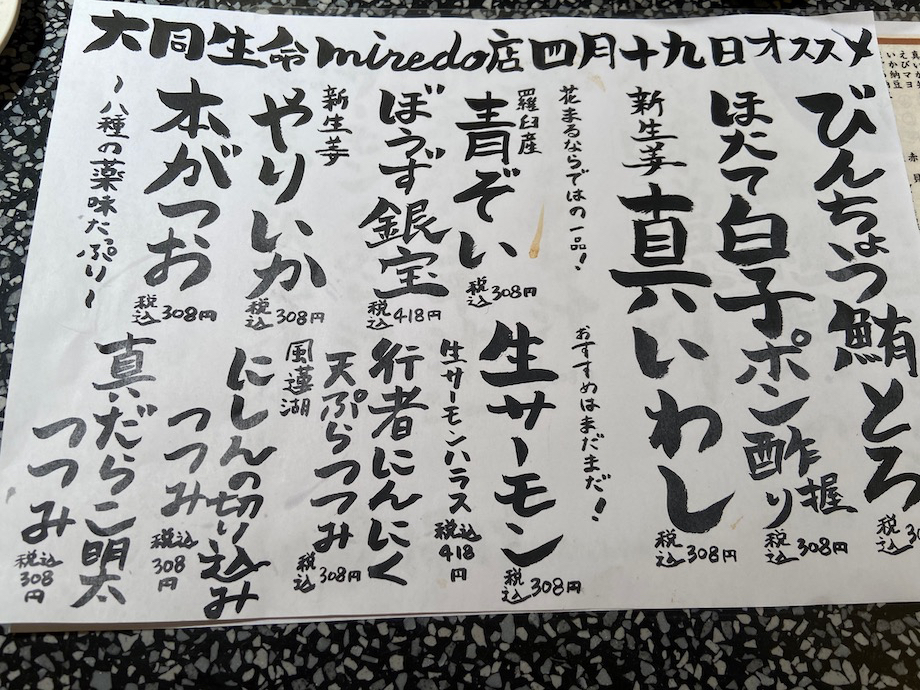 大同生命miredo店四月十九日オススメ
びんちょう鮪とろ
税込
ほたて白子ポン酢握り
税込308円
新生姜
真いわし
税込308円
花まるならではの一品!
おすすめはまだまだ!
羅臼産
青ぞい
税込308円
生サーモン
税込308円
生サーモンハラス
税込418円
ぼうず銀宝
税込418円
行者にんにく
天ぷらつつみ
税込308円
新生姜
やりいか
税込308円
風蓮湖
にしんの切り込み
つつみ
税込308円
本がつお
税込308円
〜八種の薬味たっぷり〜
真だらこ明太
つつみ
税込308円